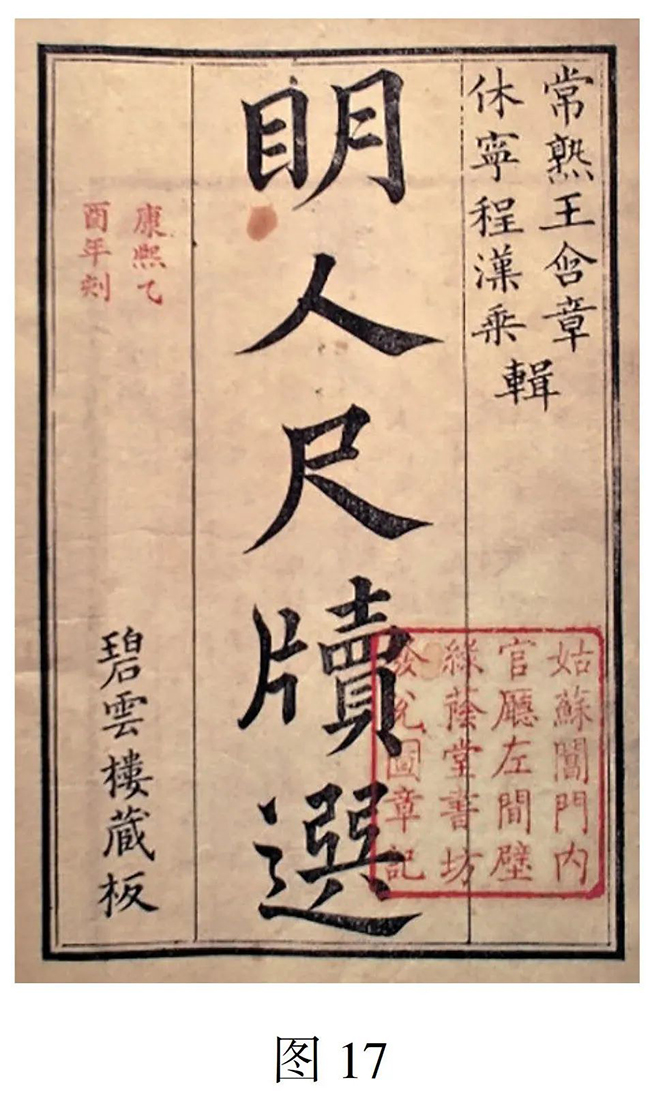 常熟王含章
休寧程漢乘
輯
眀人尺牘選
康熙乙
酉年刻
碧雲樓蔵板
姑蘇閶門内
官廳左間壁
綠蔭堂書坊
發兌圖章記
图 17